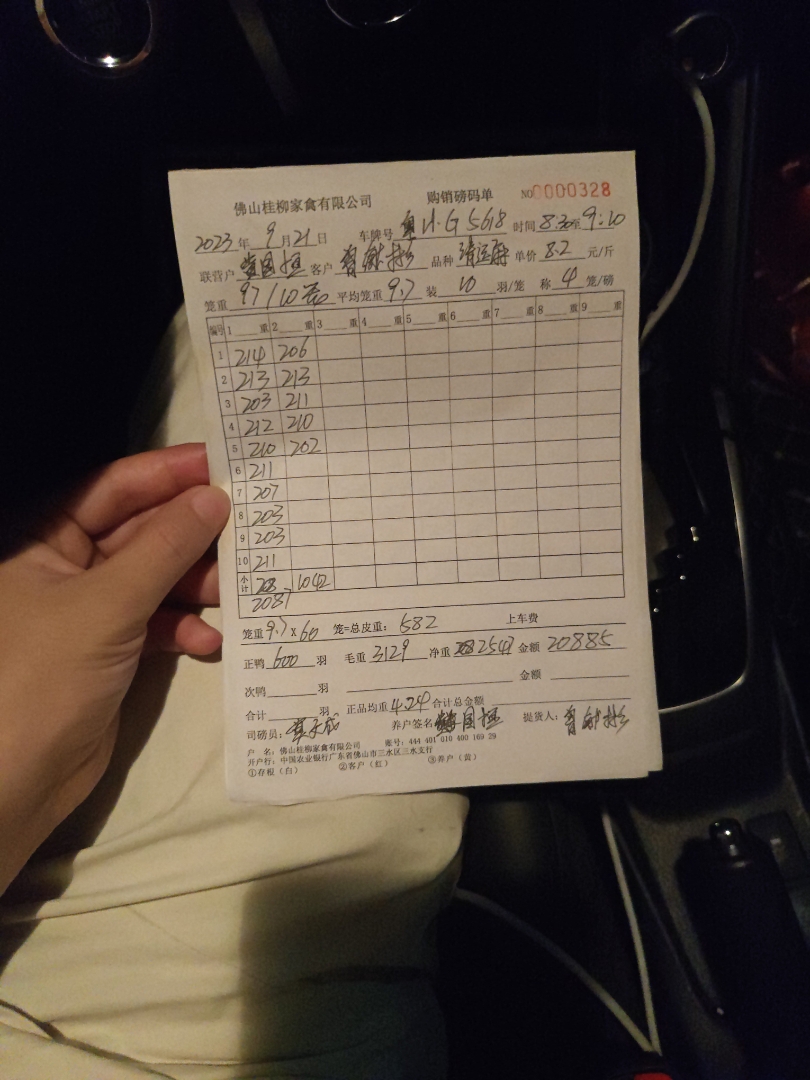 佛山桂柳家禽有限公司 购销磅码单 NO 0000328
2023年 9月21日 车牌号 粤H·G5618 时间 8.30至9:10
联营户 客户 品种 单价 8.2 元/斤
笼重 97/10 平均笼重 9.7 装 10 羽/笼 称 4 笼/磅
编号 1 重 2 重 3 重 4 重 5 重 6 重 7 重 8 重 9 重
1 214 206
2 213 213
3 203 211
4 212 210
5 210 202
6 211
7 207
8 203
9 203
10 211
小计 1042
2087
笼重 9.7×60 笼=总皮重: 582 上车费
正鸭 600 羽 毛重 3129 净重 2547 金额 20885
次鸭 羽 金额
合计 羽 正品均重 4.24 合计总金额
司磅员: 养户签名 提货人:
户 名: 佛山桂柳家禽有限公司 账号: 444 401 010 400 169 29
开户行: 中国农业银行广东省佛山市三水区三水支行
①存根(白) ②客户(红) ③养户(黄)